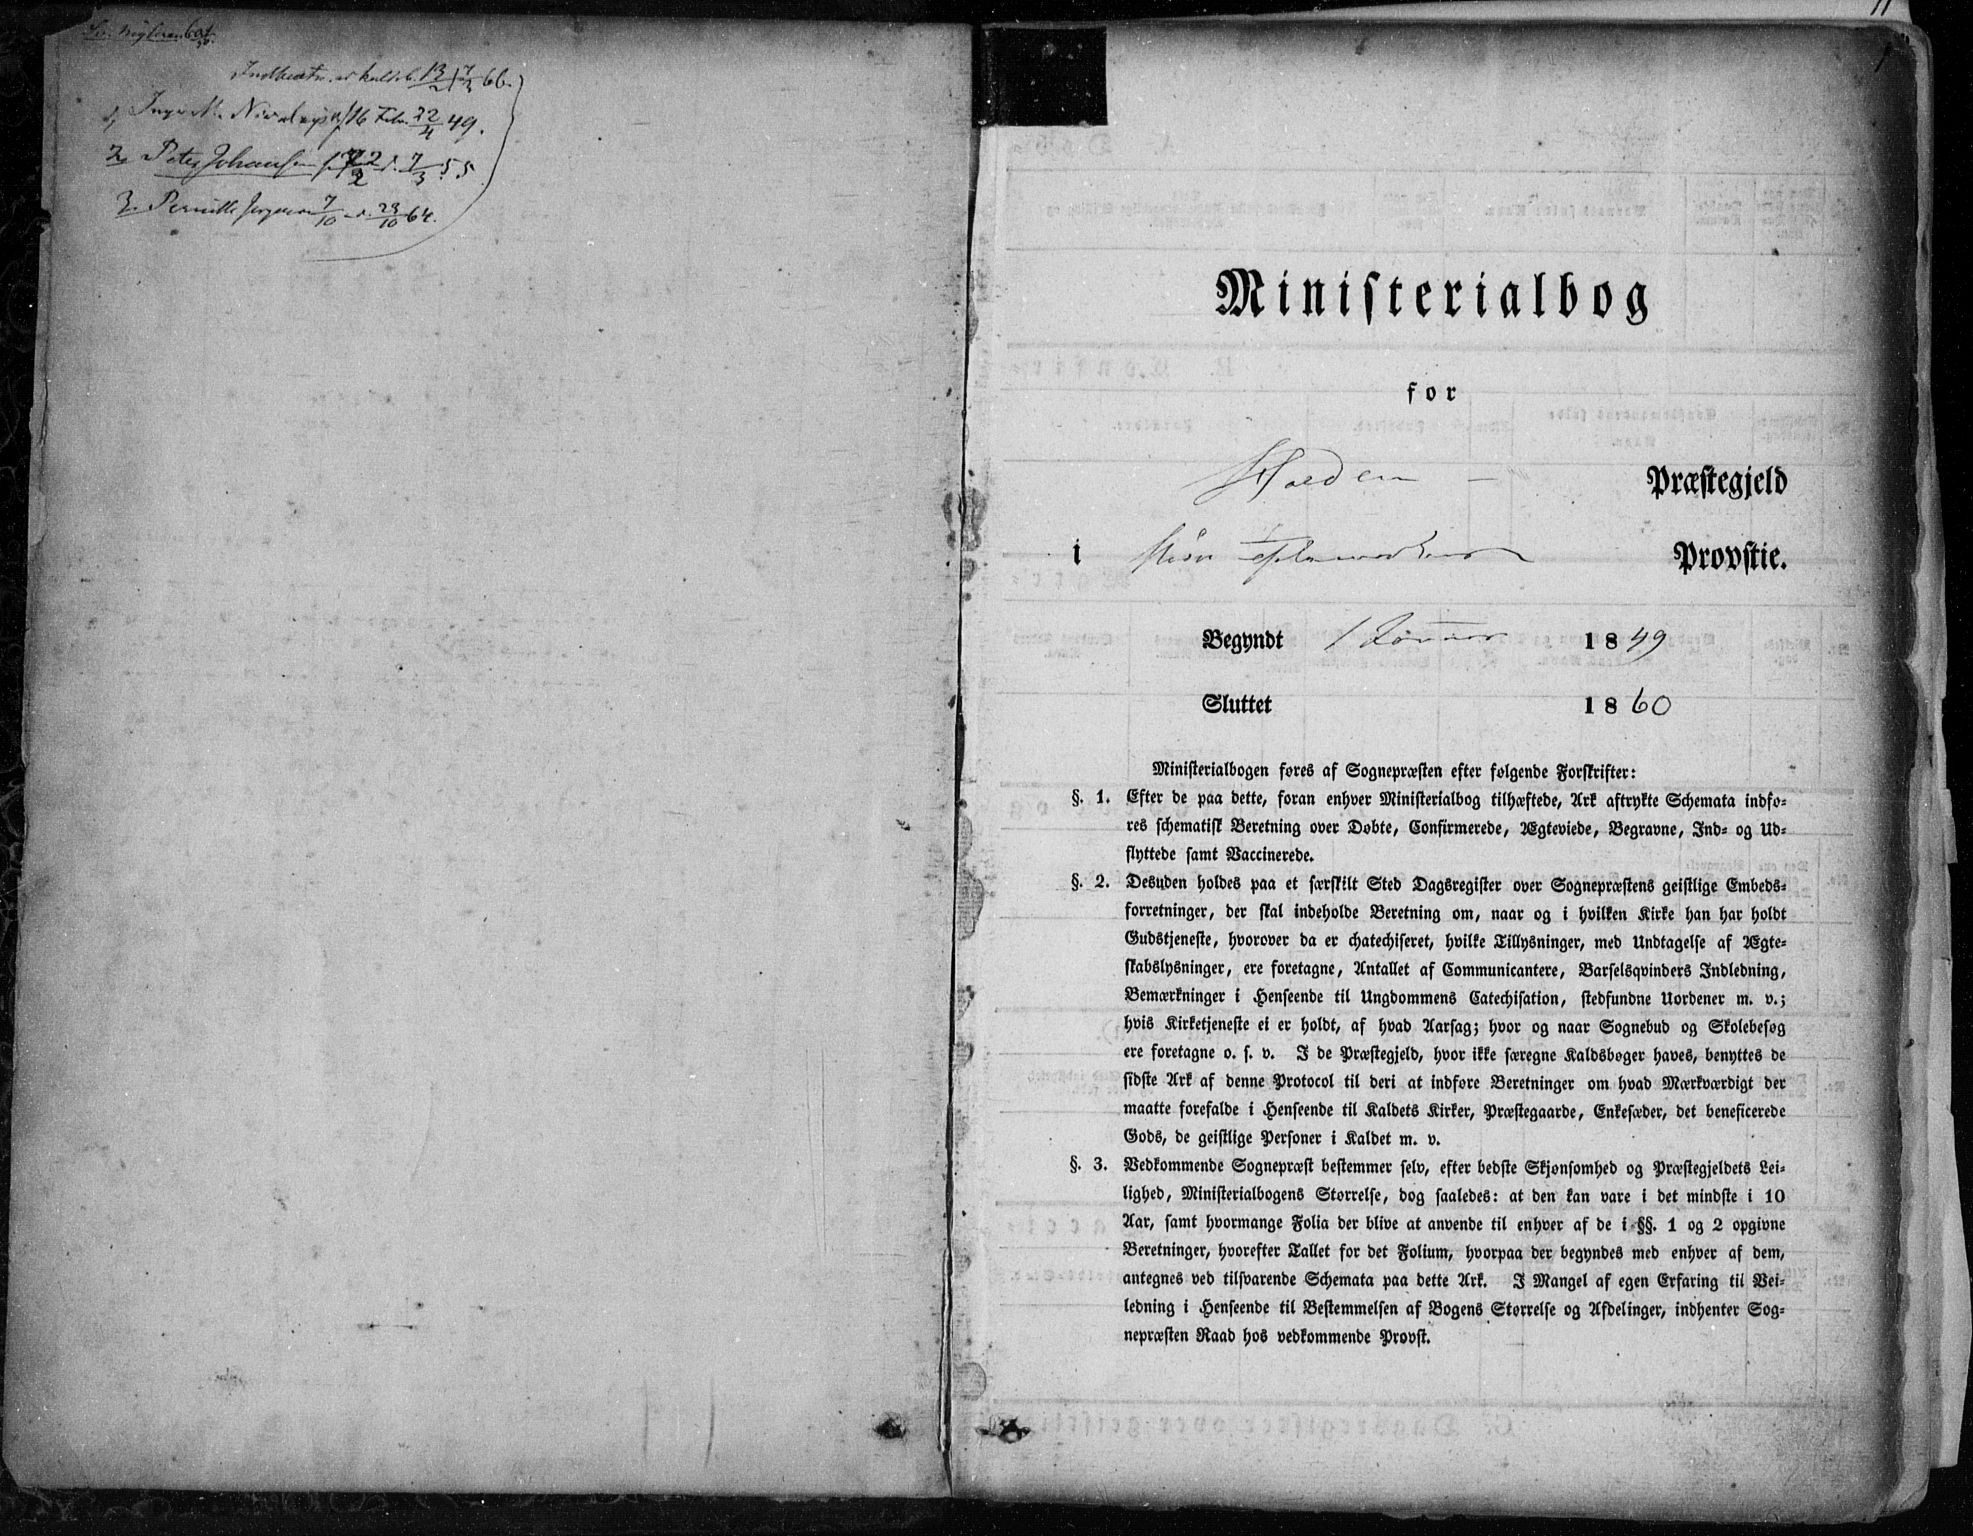 Indberetn.
1, Inge M. f 16 Febr. 22/4 49.
2, Peter Johansen d. 7/3 55.
3. Pernille 7/10 d. 23/10 64.
Ministerialbog
for
Holden Præstegjeld
i Provstie.
Begyndt 1 Januar 1849
Sluttet 1860
Ministerialbogen føres af Sognepræsten efter følgende Forskrifter:
§. 1. Efter de paa dette, foran enhver Ministerialbog tilhæftede, Ark aftrykte Schemata indfø-
res schematisk Beretning over Døbte, Confirmerede, Ægteviede, Begravne, Ind- og Ud-
flyttede samt Vaccinerede.
§. 2. Desuden holdes paa et særskilt Sted Dagsregister over Sognepræstens geistlige Embeds-
forretninger, der skal indeholde Beretning om, naar og i hvilken Kirke han har holdt
Gudstjeneste, hvorover da er chatechiseret, hvilke Tillysninger, med Undtagelse af Ægte-
skabslysninger, ere foretagne, Antallet af Communicantere, Barselsqvinders Indledning,
Bemærkninger i Henseende til Ungdommens Catechisation, stedfundne Uordener m. v.;
hvis Kirketjeneste ei er holdt, af hvad Aarsag; hvor og naar Sognebud og Skolebesøg
ere foretagne o. s. v. I de Præstegjeld, hvor ikke særegne Kaldsbøger haves, benyttes de
sidste Ark af denne Protocol til deri at indføre Beretninger om hvad Mærkværdigt der
maatte forefalde i Henseende til Kaldets Kirker, Præstegaarde, Enkesæder, det beneficerede
Gods, de geistlige Personer i Kaldet m. v.
§. 3. Vedkommende Sognepræst bestemmer selv, efter bedste Skjønsomhed og Præstegjeldets Lei-
lighed, Ministerialbogens Størrelse, dog saaledes: at den kan vare i det mindste i 10
Aar, samt hvormange Folia der blive at anvende til enhver af de i §§. 1 og 2 opgivne
Beretninger, hvorefter Tallet for det Folium, hvorpaa der begyndes med enhver af dem,
antegnes ved tilsvarende Schemata paa dette Ark. I Mangel af egen Erfaring til Vei-
ledning i Henseende til Bestemmelsen af Bogens Størrelse og Afdelinger, indhenter Sog-
nepræsten Raad hos vedkommende Provst.